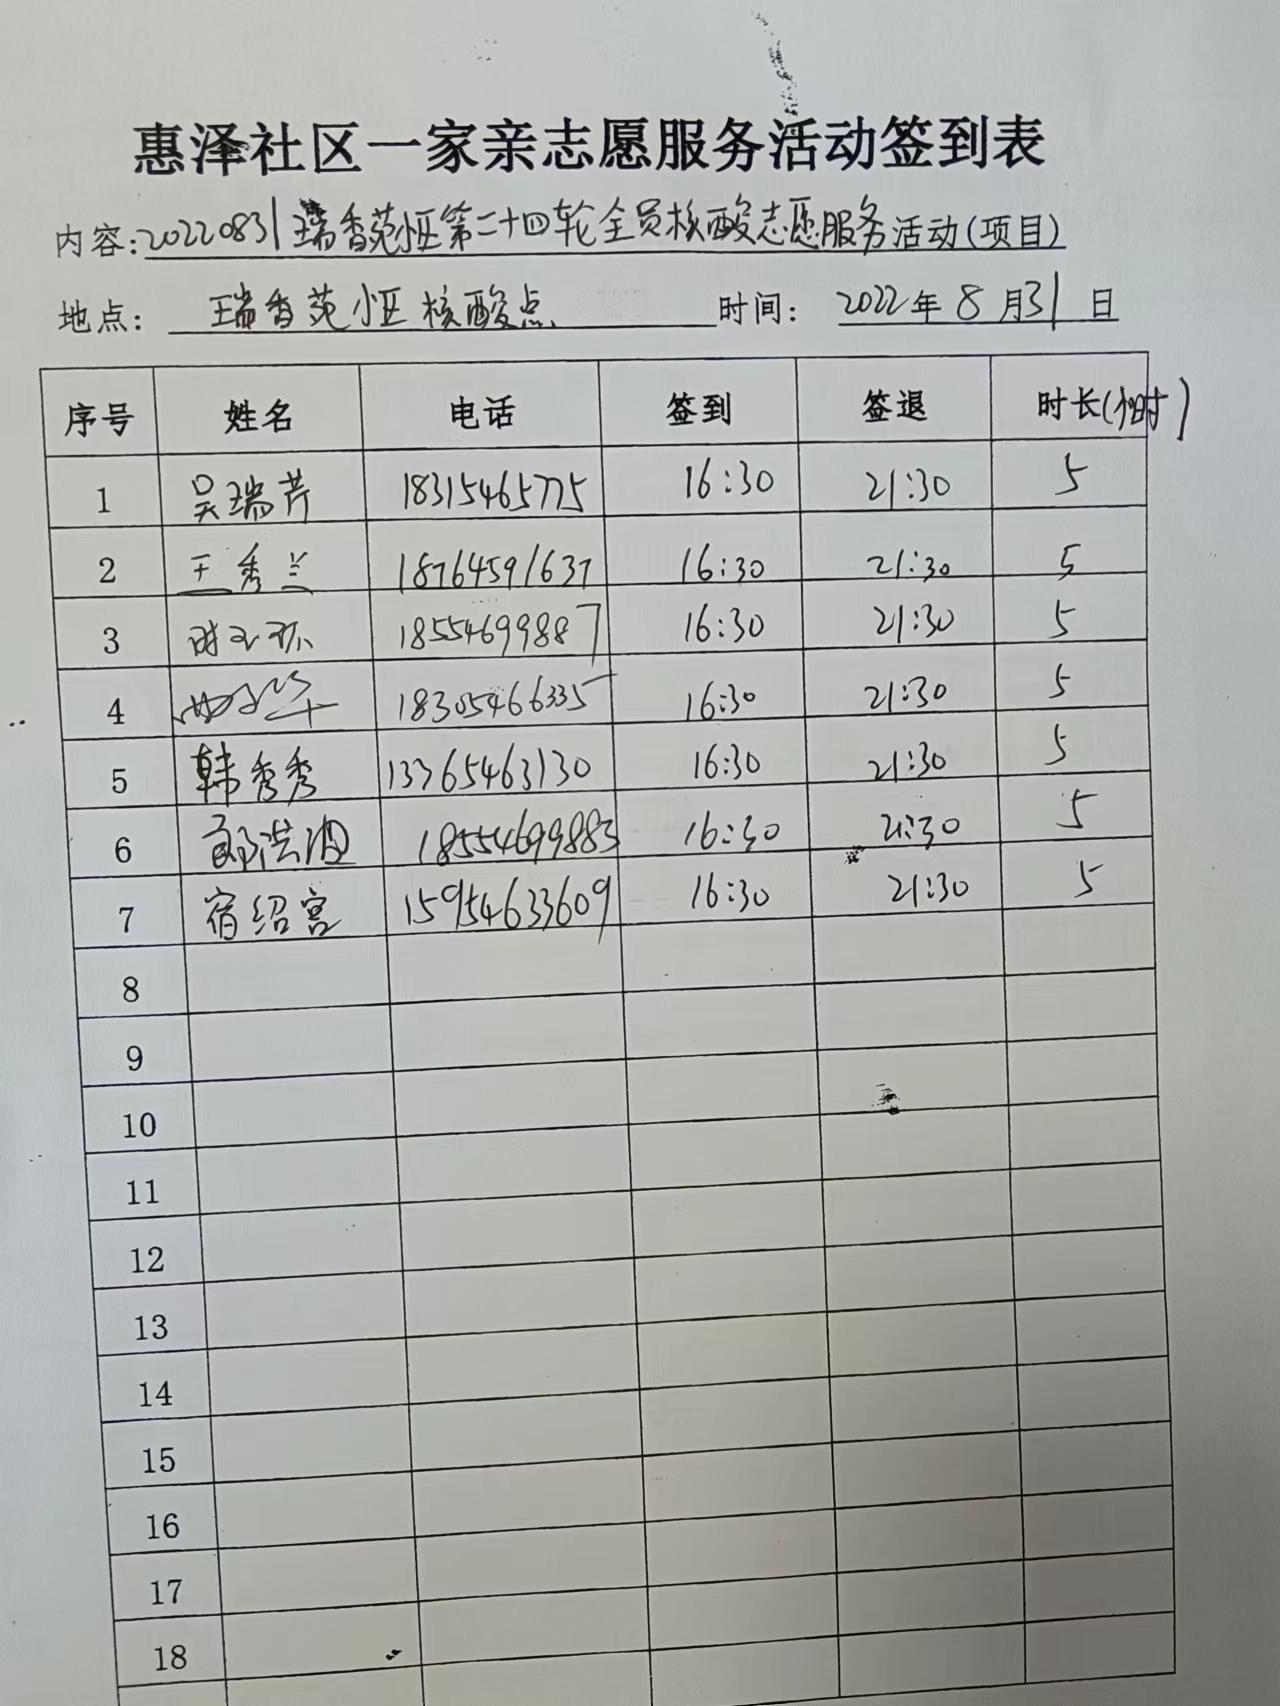 惠泽社区一家亲志愿服务活动签到表
内容:20220831瑞香苑小区第二十四轮全员核酸志愿服务活动(项目)
地点: 瑞香苑小区核酸点 时间: 2022年8月31日
序号 姓名 电话 签到 签退 时长(小时)
1 吴瑞芹 18315465775 16:30 21:30 5
2 王秀兰 18764591637 16:30 21:30 5
3 18554699887 16:30 21:30 5
4 18305466335 16:30 21:30 5
5 韩秀秀 13365463130 16:30 21:30 5
6 18554699883 16:30 21:30 5
7 宿绍宫 15954633609 16:30 21:30 5
8
9
10
11
12
13
14
15
16
17
18